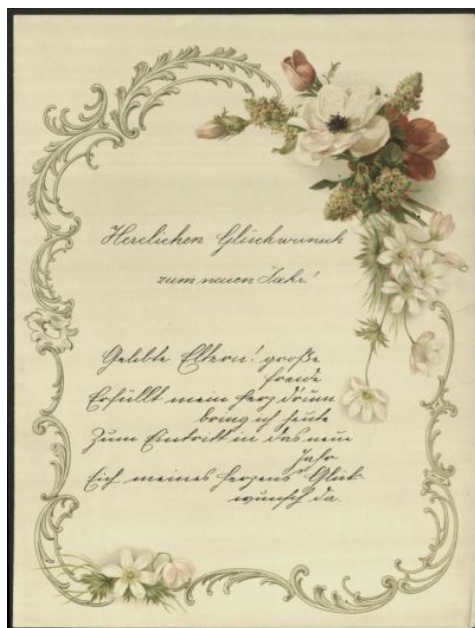 Herclichen Glückwunsch
zum neuen Jahr!
Gelibte Eltern! große
freide
Erfüllt mein Herz drum
bring ich heute
Zum Eintritt in das neue
Jahr
Eich meines Herzens Glück-
wunsch da.